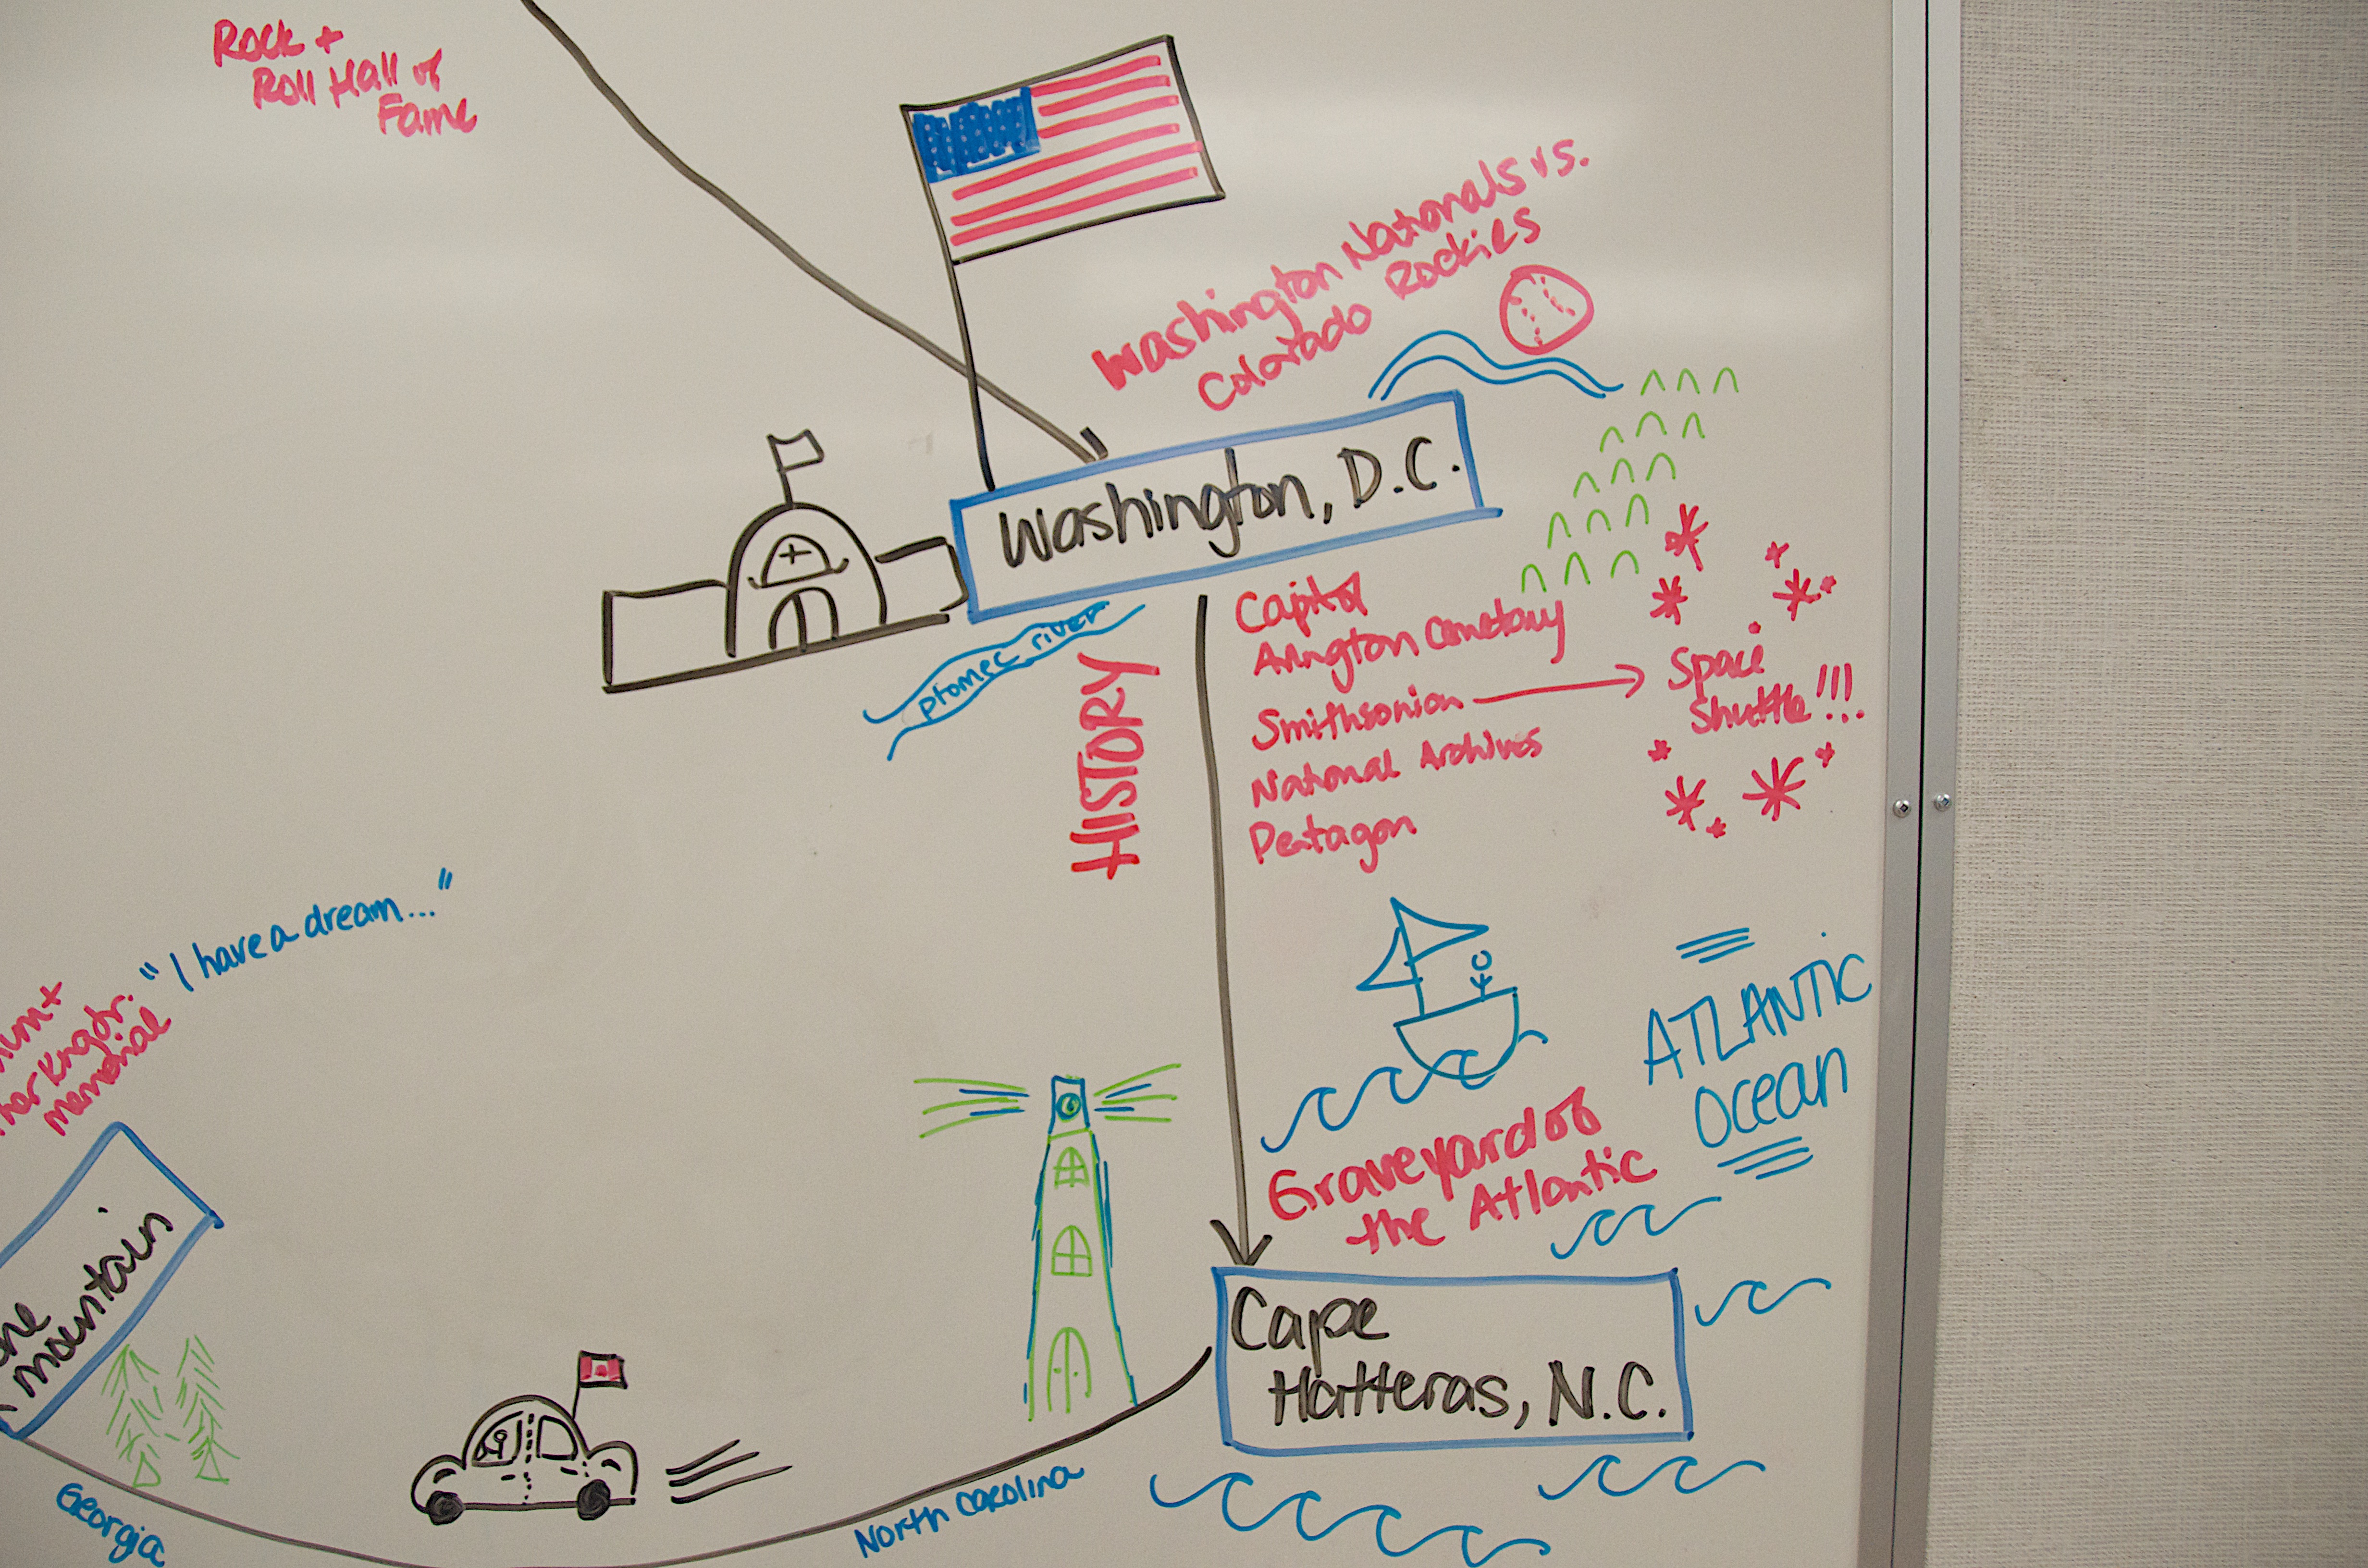 Rock +
Roll Hall of
Fame
Washington Nationals vs.
Colorado Rockies
Washington, D.C.
ptomec river
HISTORY
Capitol
Arlington Cemetary
Smithsonian
Space
Shuttle!!!
National Archives
Pentagon
"I have a dream..."
King Jr.
memorial
ATLANTIC
Ocean
Graveyard of
the Atlantic
mountain
Cape
Hatteras, N.C.
Georgia
North Carolina